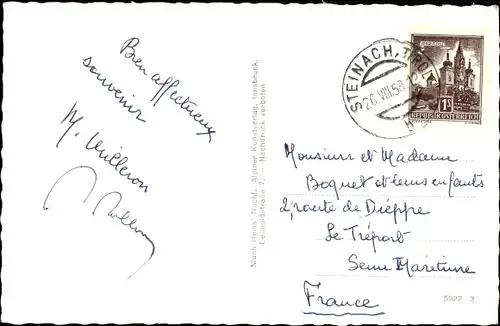 Bien affectueux
souvenir
M. Milleron
Much Heiss' Nachf., Alpiner Kunstverlag, Innsbruck,
Leopoldstraße 7. — Nachdruck verboten
STEINACH, TIROL
26.VIII.58
1S
REPUBLIK ÖSTERREICH
Monsieur et Madame
Boquet et leurs enfants
2, route de Dieppe
Le Tréport
Seine Maritime
France
5927 3